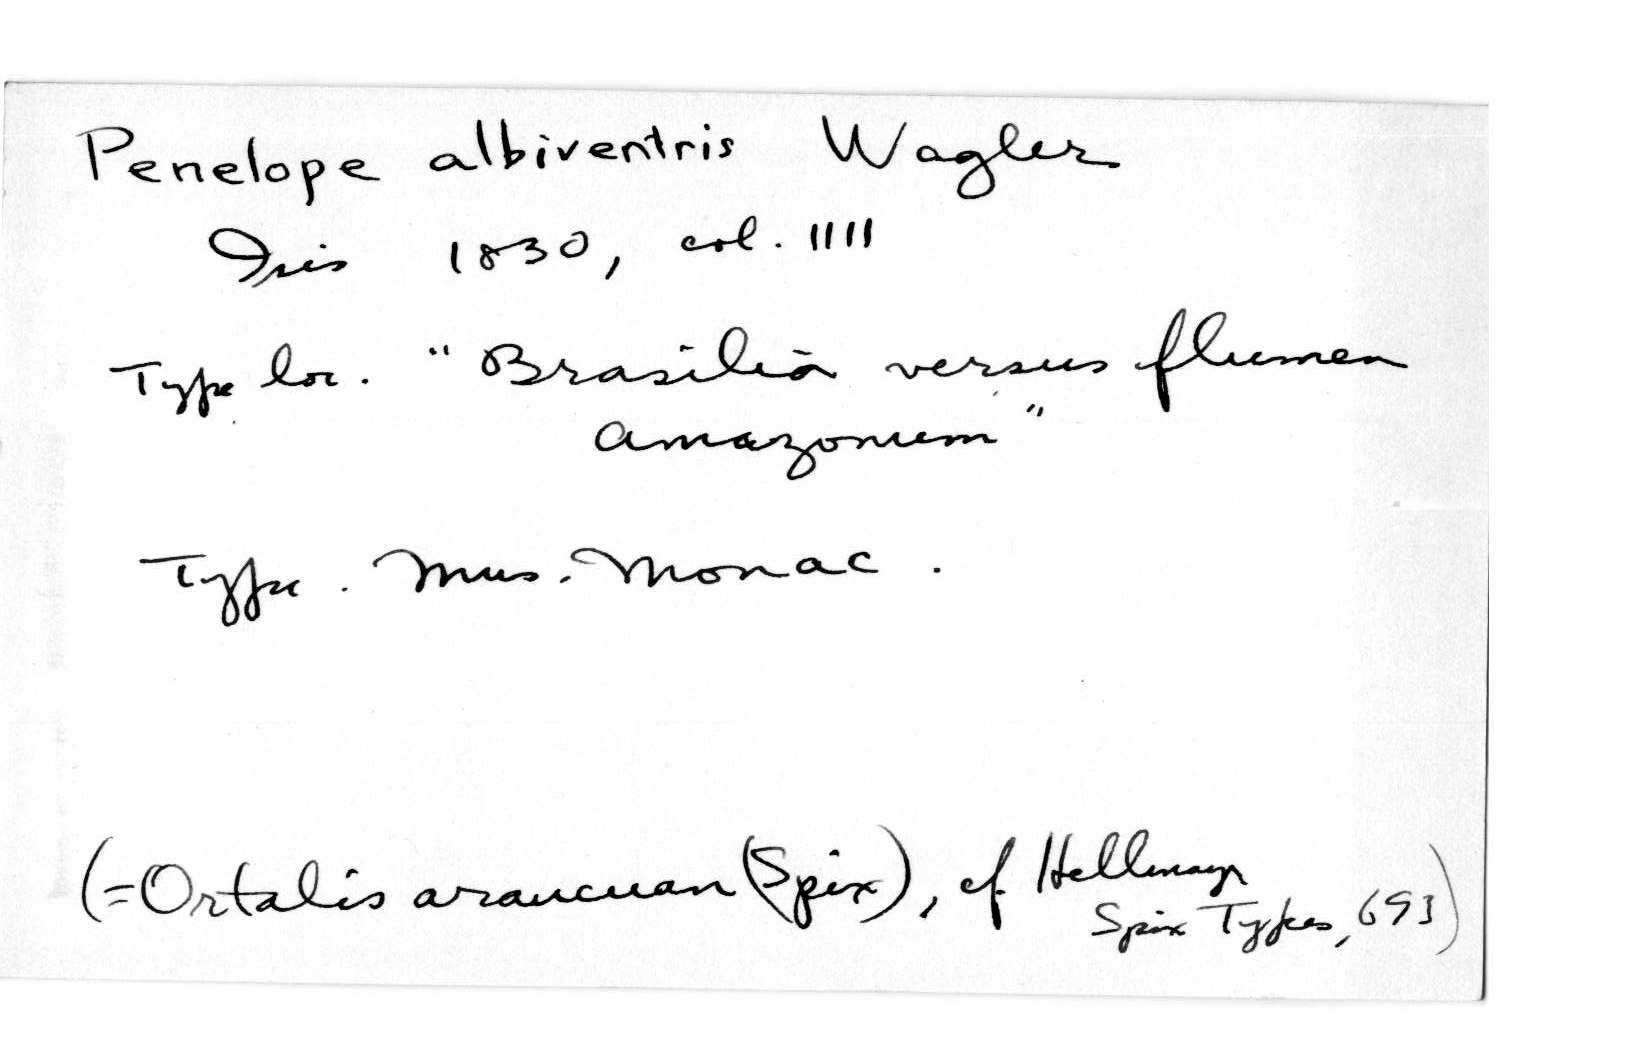 Penelope albiventris Wagler
Isis 1830, col. 1111
Type loc. "Brasilia versus flumen
amazonum"
Type. Mus. Monac.
(=Ortalis araucuan (Spix), cf Hellmayr
Spix Types, 693)